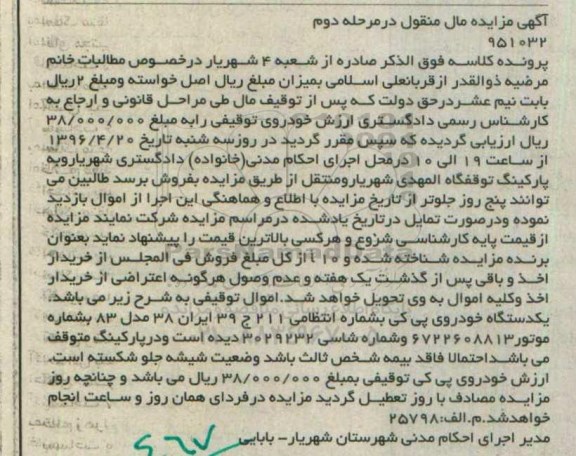 آگهی مزایده مال منقول درمرحله دوم
۹۵۱۰۳۲
پرونده کلاسه فوق الذکر صادره از شعبه ۴ شهریار درخصوص مطالبات خانم
مرضیه ذوالقدر ازقربانعلی اسلامی بمیزان مبلغ ریال اصل خواسته ومبلغ ۲ ریال
بابت نیم عشردرحق دولت که پس از توقیف مال طی مراحل قانونی و ارجاع به
کارشناس رسمی دادگستری ارزش خودروی توقیفی رابه مبلغ ۳۸/۰۰۰/۰۰۰
ریال ارزیابی گردیده که سپس مقرر گردید در روزسه شنبه تاریخ ۱۳۹۶/۴/۲۰
از ساعت ۱۹ الی ۱۰ درمحل اجرای احکام مدنی(خانواده) دادگستری شهریاروبه
پارکینگ توقفگاه المهدی شهریارومنتقل از طریق مزایده بفروش برسد طالبین می
توانند پنج روز جلوتر از تاریخ مزایده با اطلاع و هماهنگی این اجرا از اموال بازدید
نموده ودرصورت تمایل درتاریخ یادشده درمراسم مزایده شرکت نمایند مزایده
ازقیمت پایه کارشناسی شروع و هرکسی بالاترین قیمت را پیشنهاد نماید بعنوان
برنده مزایده شناخته شده و ۱۰٪ از کل مبلغ فروش فی المجلس از خریدار
اخذ و باقی پس از گذشت یک هفته و عدم وصول هرگونه اعتراضی از خریدار
اخذ وکلیه اموال به وی تحویل خواهد شد. اموال توقیفی به شرح زیر می باشد.
یکدستگاه خودروی پی کی بشماره انتظامی ۲۱۱ ج ۳۹ ایران ۳۸ مدل ۸۳ بشماره
موتور۶۷۲۲۶۰۸۸۱۳ وشماره شاسی ۳۰۲۹۲۳۲ دیده است ودرپارکینگ متوقف
می باشداحتمالا فاقد بیمه شخص ثالث باشد وضعیت شیشه جلو شکسته است.
ارزش خودروی پی کی توقیفی بمبلغ ۳۸/۰۰۰/۰۰۰ ریال می باشد و چنانچه روز
مزایده مصادف با روز تعطیل گردید مزایده درفردای همان روز و ساعت انجام
خواهدشد.م.الف:۲۵۷۹۸
مدیر اجرای احکام مدنی شهرستان شهریار– بابایی